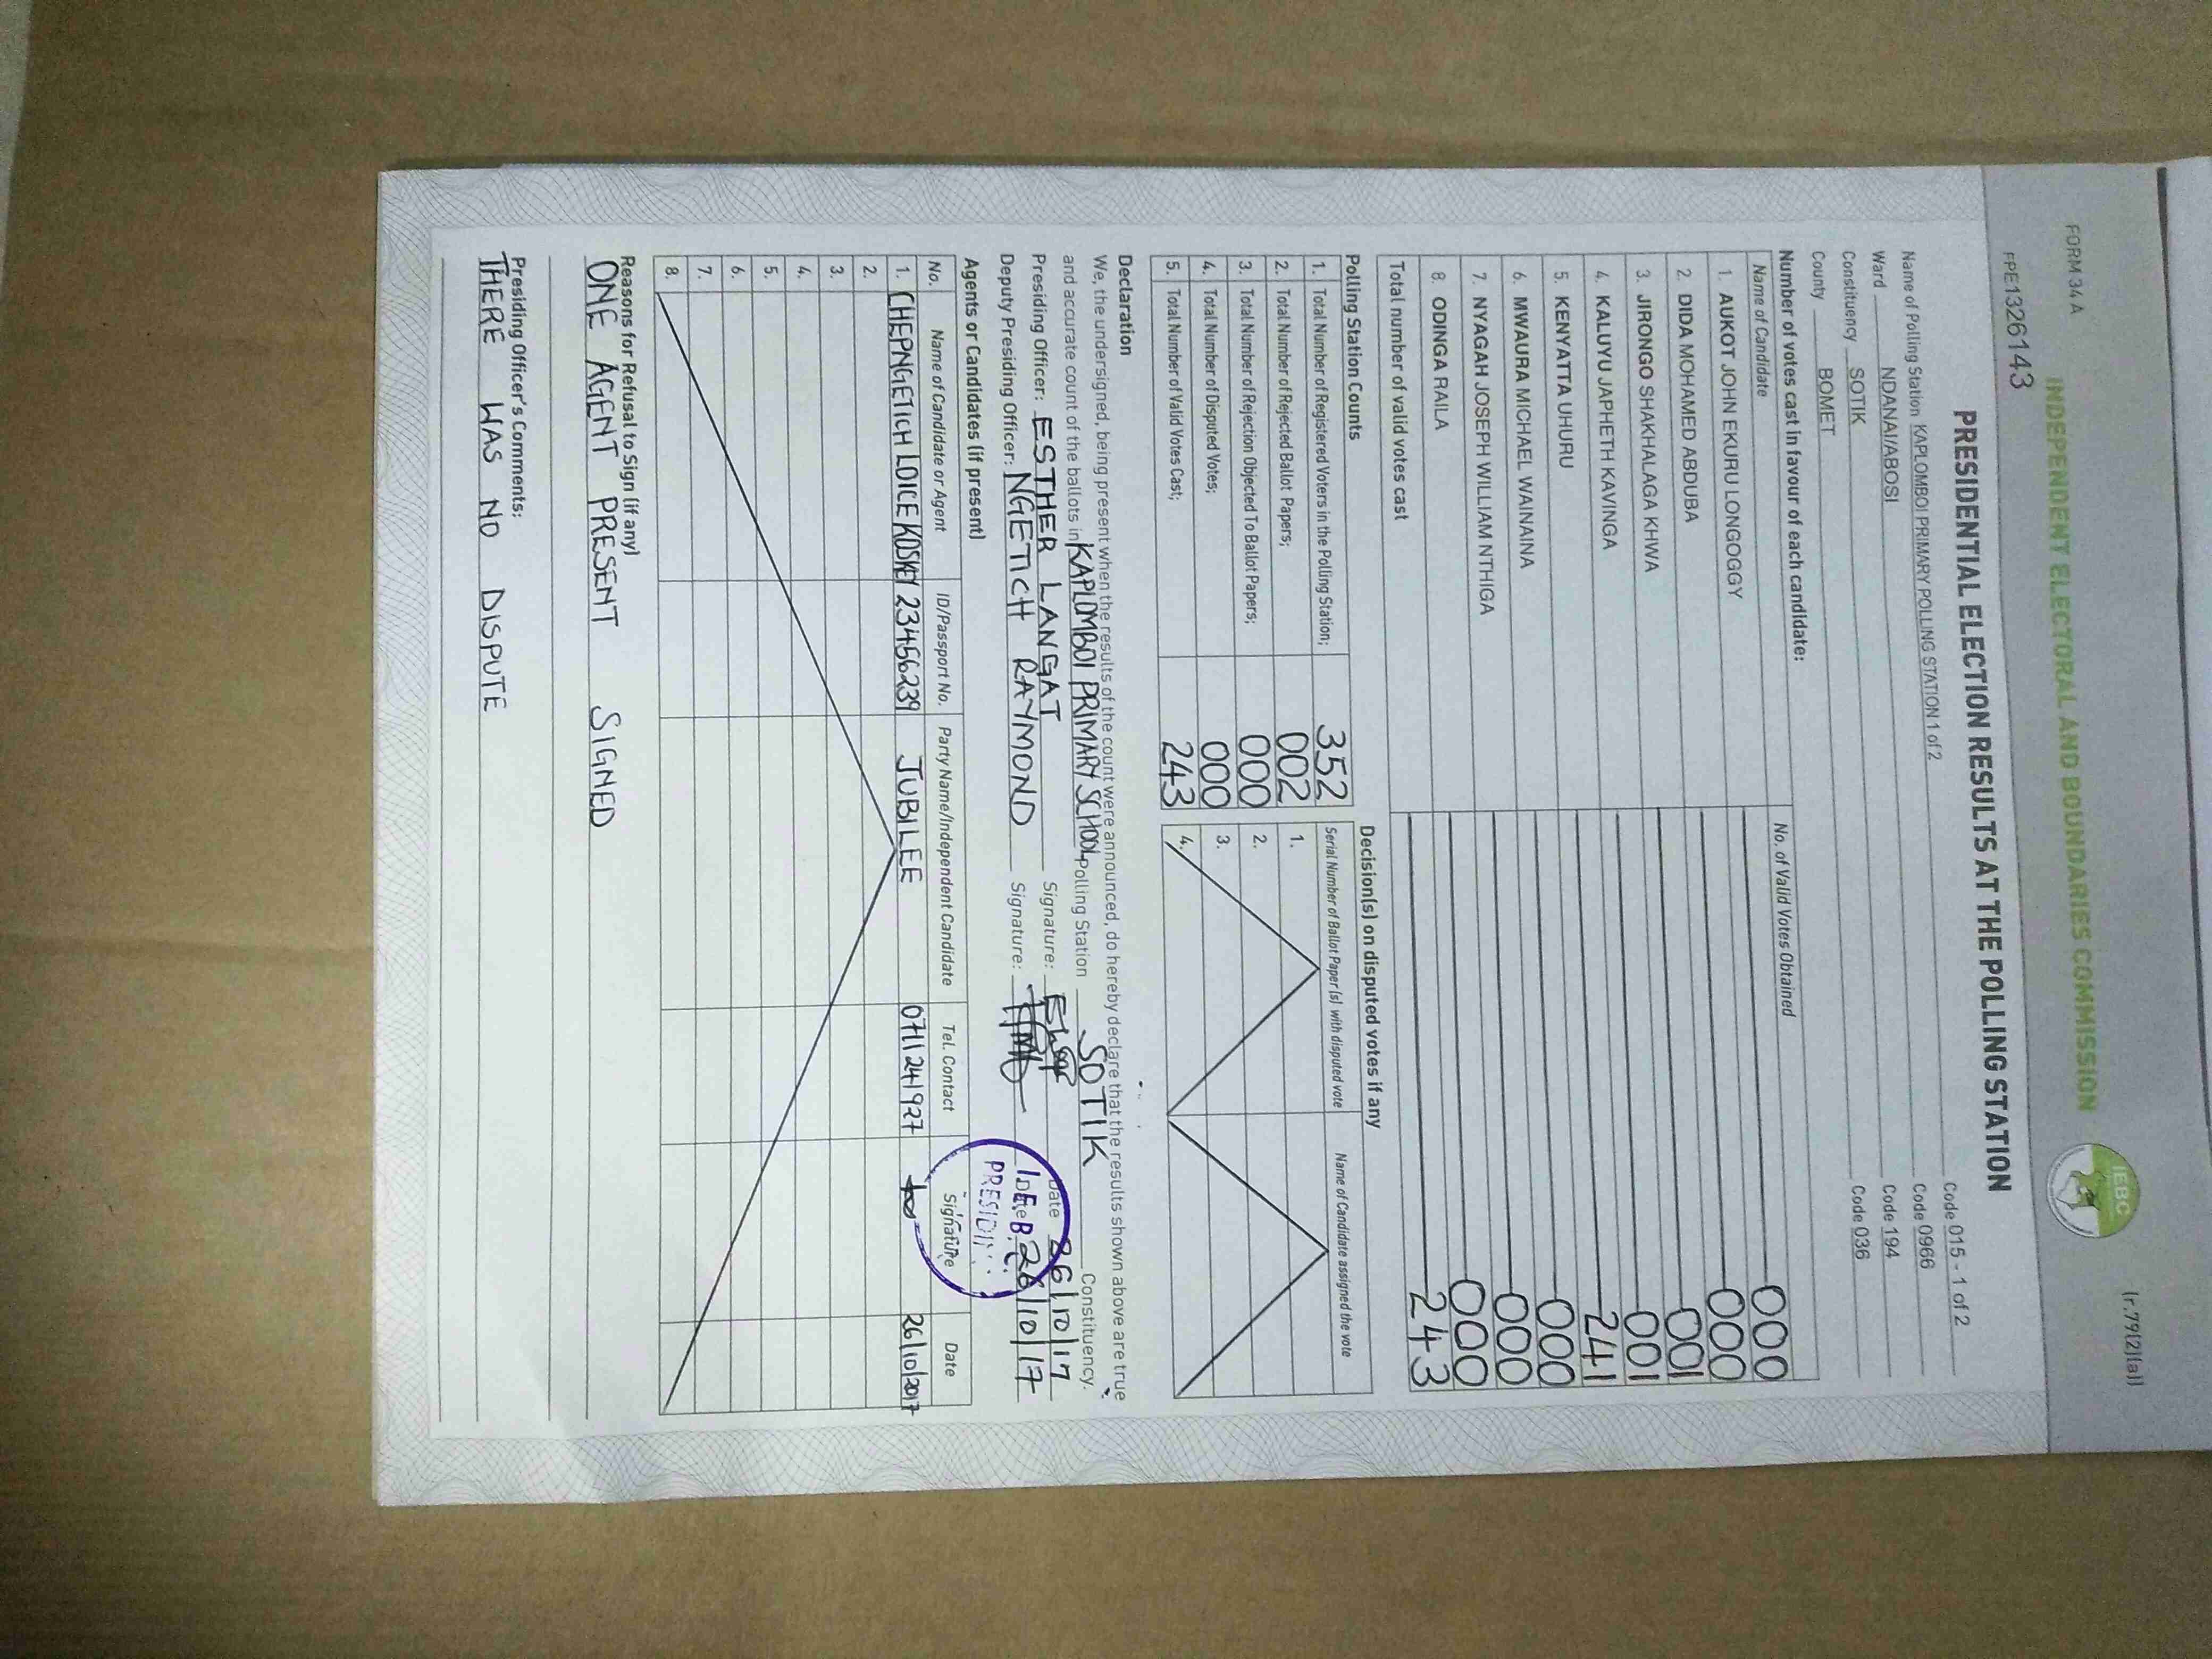 FORM 34 A
(r.79(2)(a))
INDEPENDENT ELECTORAL AND BOUNDARIES COMMISSION
IEBC
PPE1326143
PRESIDENTIAL ELECTION RESULTS AT THE POLLING STATION
Name of Polling Station KAPLOMBOI PRIMARY POLLING STATION 1 of 2 Code 015 - 1 of 2
Ward NDANAI/ABOSI Code 0966
Constituency SOTIK Code 194
County BOMET Code 036
Number of votes cast in favour of each candidate:
Name of Candidate No. of Valid Votes Obtained
1. AUKOT JOHN EKURU LONGOGGY 000
2. DIDA MOHAMED ABDUBA 000
3. JIRONGO SHAKHALAGA KHWA 001
4. KALUYU JAPHETH KAVINGA 001
5. KENYATTA UHURU 241
6. MWAURA MICHAEL WAINAINA 000
7. NYAGAH JOSEPH WILLIAM NTHIGA 000
8. ODINGA RAILA 000
Total number of valid votes cast 243
Polling Station Counts
1. Total Number of Registered Voters in the Polling Station; 352
2. Total Number of Rejected Ballot Papers; 002
3. Total Number of Rejection Objected To Ballot Papers; 000
4. Total Number of Disputed Votes; 000
5. Total Number of Valid Votes Cast; 243
Decision(s) on disputed votes if any
Serial Number of Ballot Paper (s) with disputed vote Name of Candidate assigned the vote
1.
2.
3.
4.
Declaration
We, the undersigned, being present when the results of the count were announced, do hereby declare that the results shown above are true
and accurate count of the ballots in KAPLOMBOI PRIMARY SCHOOL Polling Station SOTIK Constituency.
Presiding Officer: ESTHER LANGAT Signature: Date 26/10/17
Deputy Presiding Officer: NGETICH RAYMOND Signature: Date 26/10/17
Agents or Candidates (if present)
No. Name of Candidate or Agent ID/Passport No. Party Name/Independent Candidate Tel. Contact Signature Date
1. CHEPNGETICH LOICE KOSKEY 23456239 JUBILEE 0711241927 26/10/2017
2.
3.
4.
5.
6.
7.
8.
Reasons for Refusal to Sign (if any)
ONE AGENT PRESENT SIGNED
Presiding Officer's Comments:
THERE WAS NO DISPUTE